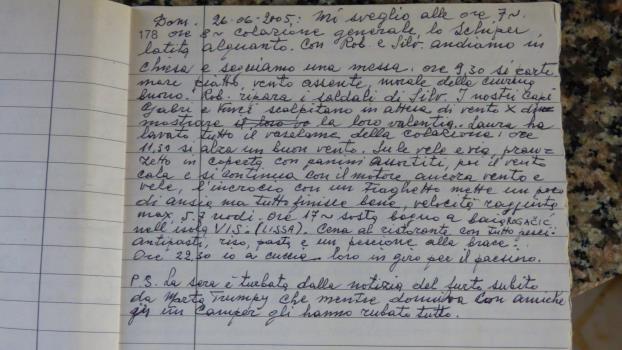 Dom. 26-06-2005: Mi sveglio alle ore 7~
178 ore 8~ colazione generale, lo Schiper
latita alquanto. Con Rob. e Silv. andiamo in
chiesa e seguiamo una messa. ore 9,30 si parte
mare piatto, vento assente, morale della ciurma
buono. Rob. ripara i sandali di Silv. I nostri capi
Gabri e scalpitano in attesa di vento X di
mostrare la loro valentia. Laura ha
lavato tutto il vasellame della colazione; ore
11,30 si alza un buon vento. Su le vele e via, pran-
zetto in coperta con panini assortiti, poi il vento
cala e si continua con il motore, ancora vento e
vele, l'incrocio con un Traghetto mette un poco
di ansia ma tutto finisce bene, velocità raggiunta
max 5.7 nodi. Ore 17~ sosta bagno a baia ROGAČIĆ
nell'isola VIS. (LISSA). Cena al ristorante con tutto pesce:
antipasti, riso, pasta e un pescione alla brace.
Ore 22.30 io a cuccia loro in giro per il paesino.
P.S. La sera è turbata dalla notizia del furto subito
da Marta Trumpy che mentre dormiva con amiche
in un Camper gli hanno rubato tutto.